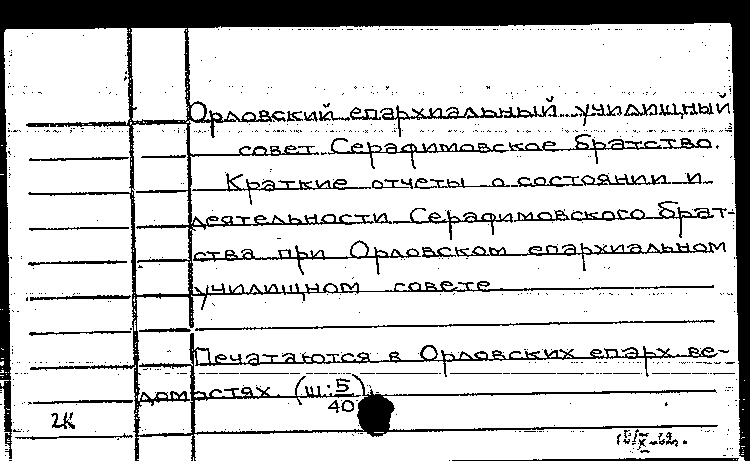 Орловский епархиальный училищный
совет. Серафимовское братство.
Краткие отчеты о состоянии и
деятельности Серафимовского брат-
ства при Орловском епархиальном
училищном совете
Печатаются в Орловских епарх. ве-
домостях. (Ш: 5/40)
2К